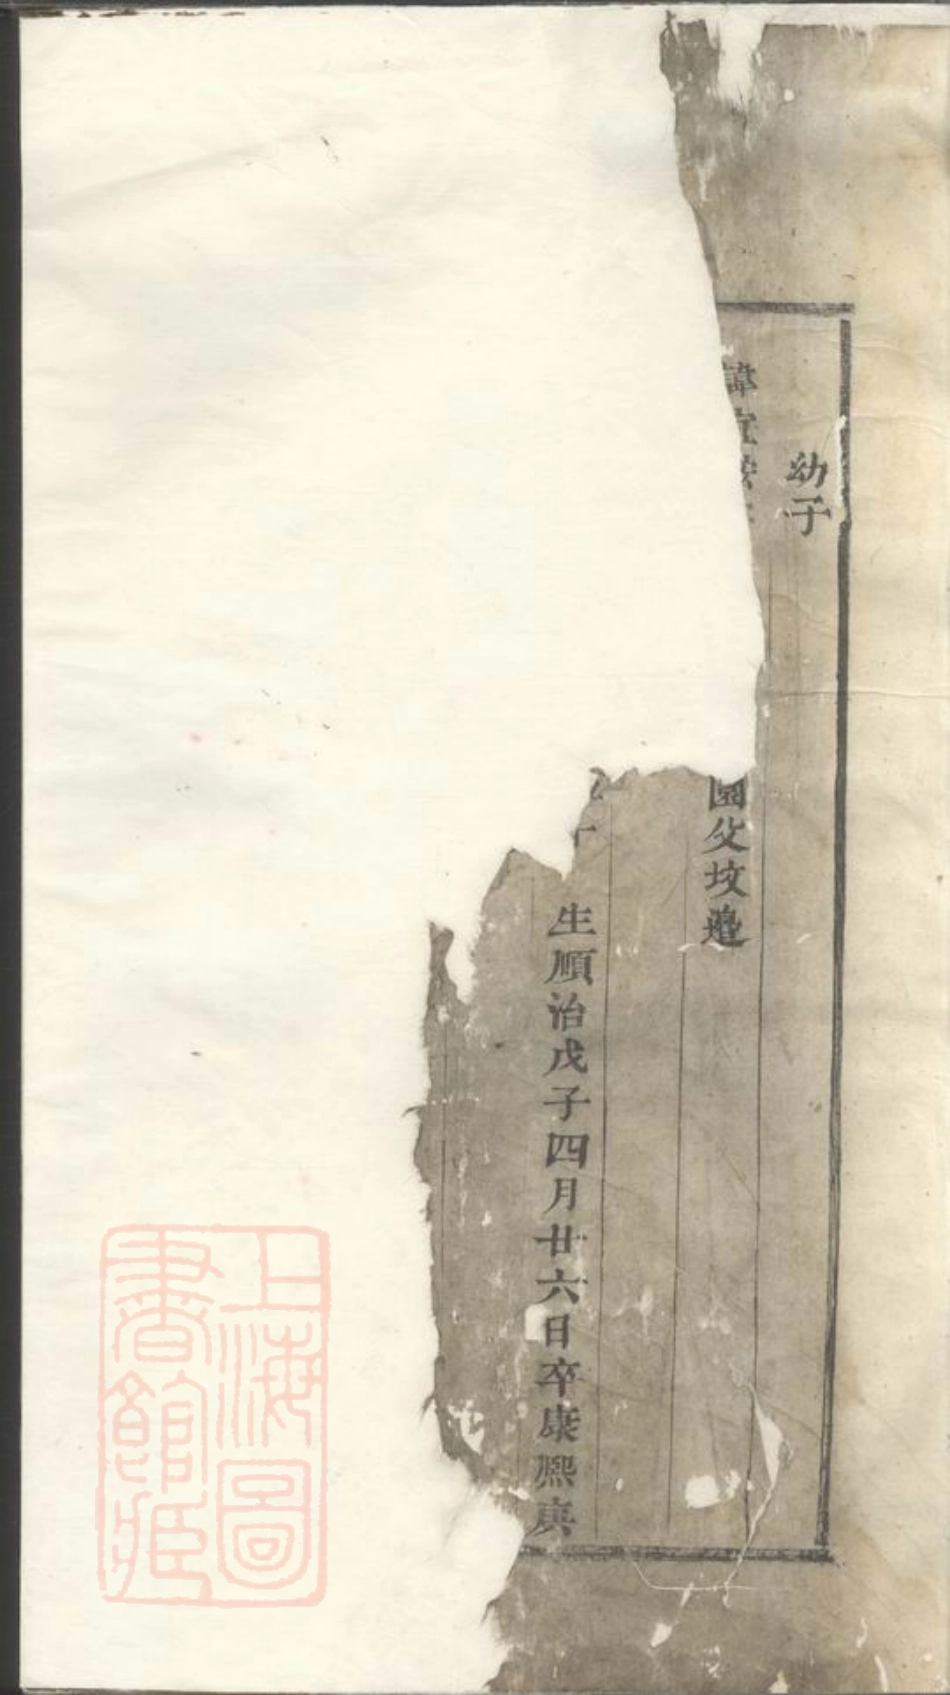 幼子
諱
園父坟邉
生順治戊子四月廿六日卒康熙庚
上海圖書館藏